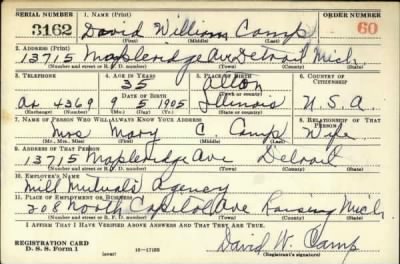 SERIAL NUMBER 1. NAME (Print) ORDER NUMBER
3162 David William Camp 60
(First) (Middle) (Last)
2. ADDRESS (Print)
13715 Mapleridge Ave Detroit Mich.
(Number and street or R. F. D. number) (Town) (County) (State)
3. TELEPHONE 4. AGE IN YEARS 5. PLACE OF BIRTH 6. COUNTRY OF CITIZENSHIP
35 Alton
DATE OF BIRTH (Town or county)
Ar 4369 9 5 1905 Illinois U.S.A.
(Exchange) (Number) (Mo.) (Day) (Yr.) (State or country)
7. NAME OF PERSON WHO WILL ALWAYS KNOW YOUR ADDRESS 8. RELATIONSHIP OF THAT PERSON
Mrs Mary C. Camp Wife
(Mr., Mrs., Miss) (First) (Middle) (Last)
9. ADDRESS OF THAT PERSON
13715 Mapleridge Ave Detroit
(Number and street or R. F. D. number) (Town) (County) (State)
10. EMPLOYER'S NAME
Mill Mutuals Agency
11. PLACE OF EMPLOYMENT OR BUSINESS
208 North Capitol Ave Lansing Mich.
(Number and street or R. F. D. number) (Town) (County) (State)
I AFFIRM THAT I HAVE VERIFIED ABOVE ANSWERS AND THAT THEY ARE TRUE.
REGISTRATION CARD
D. S. S. Form 1 (over) David W. Camp
(Registrant's signature)